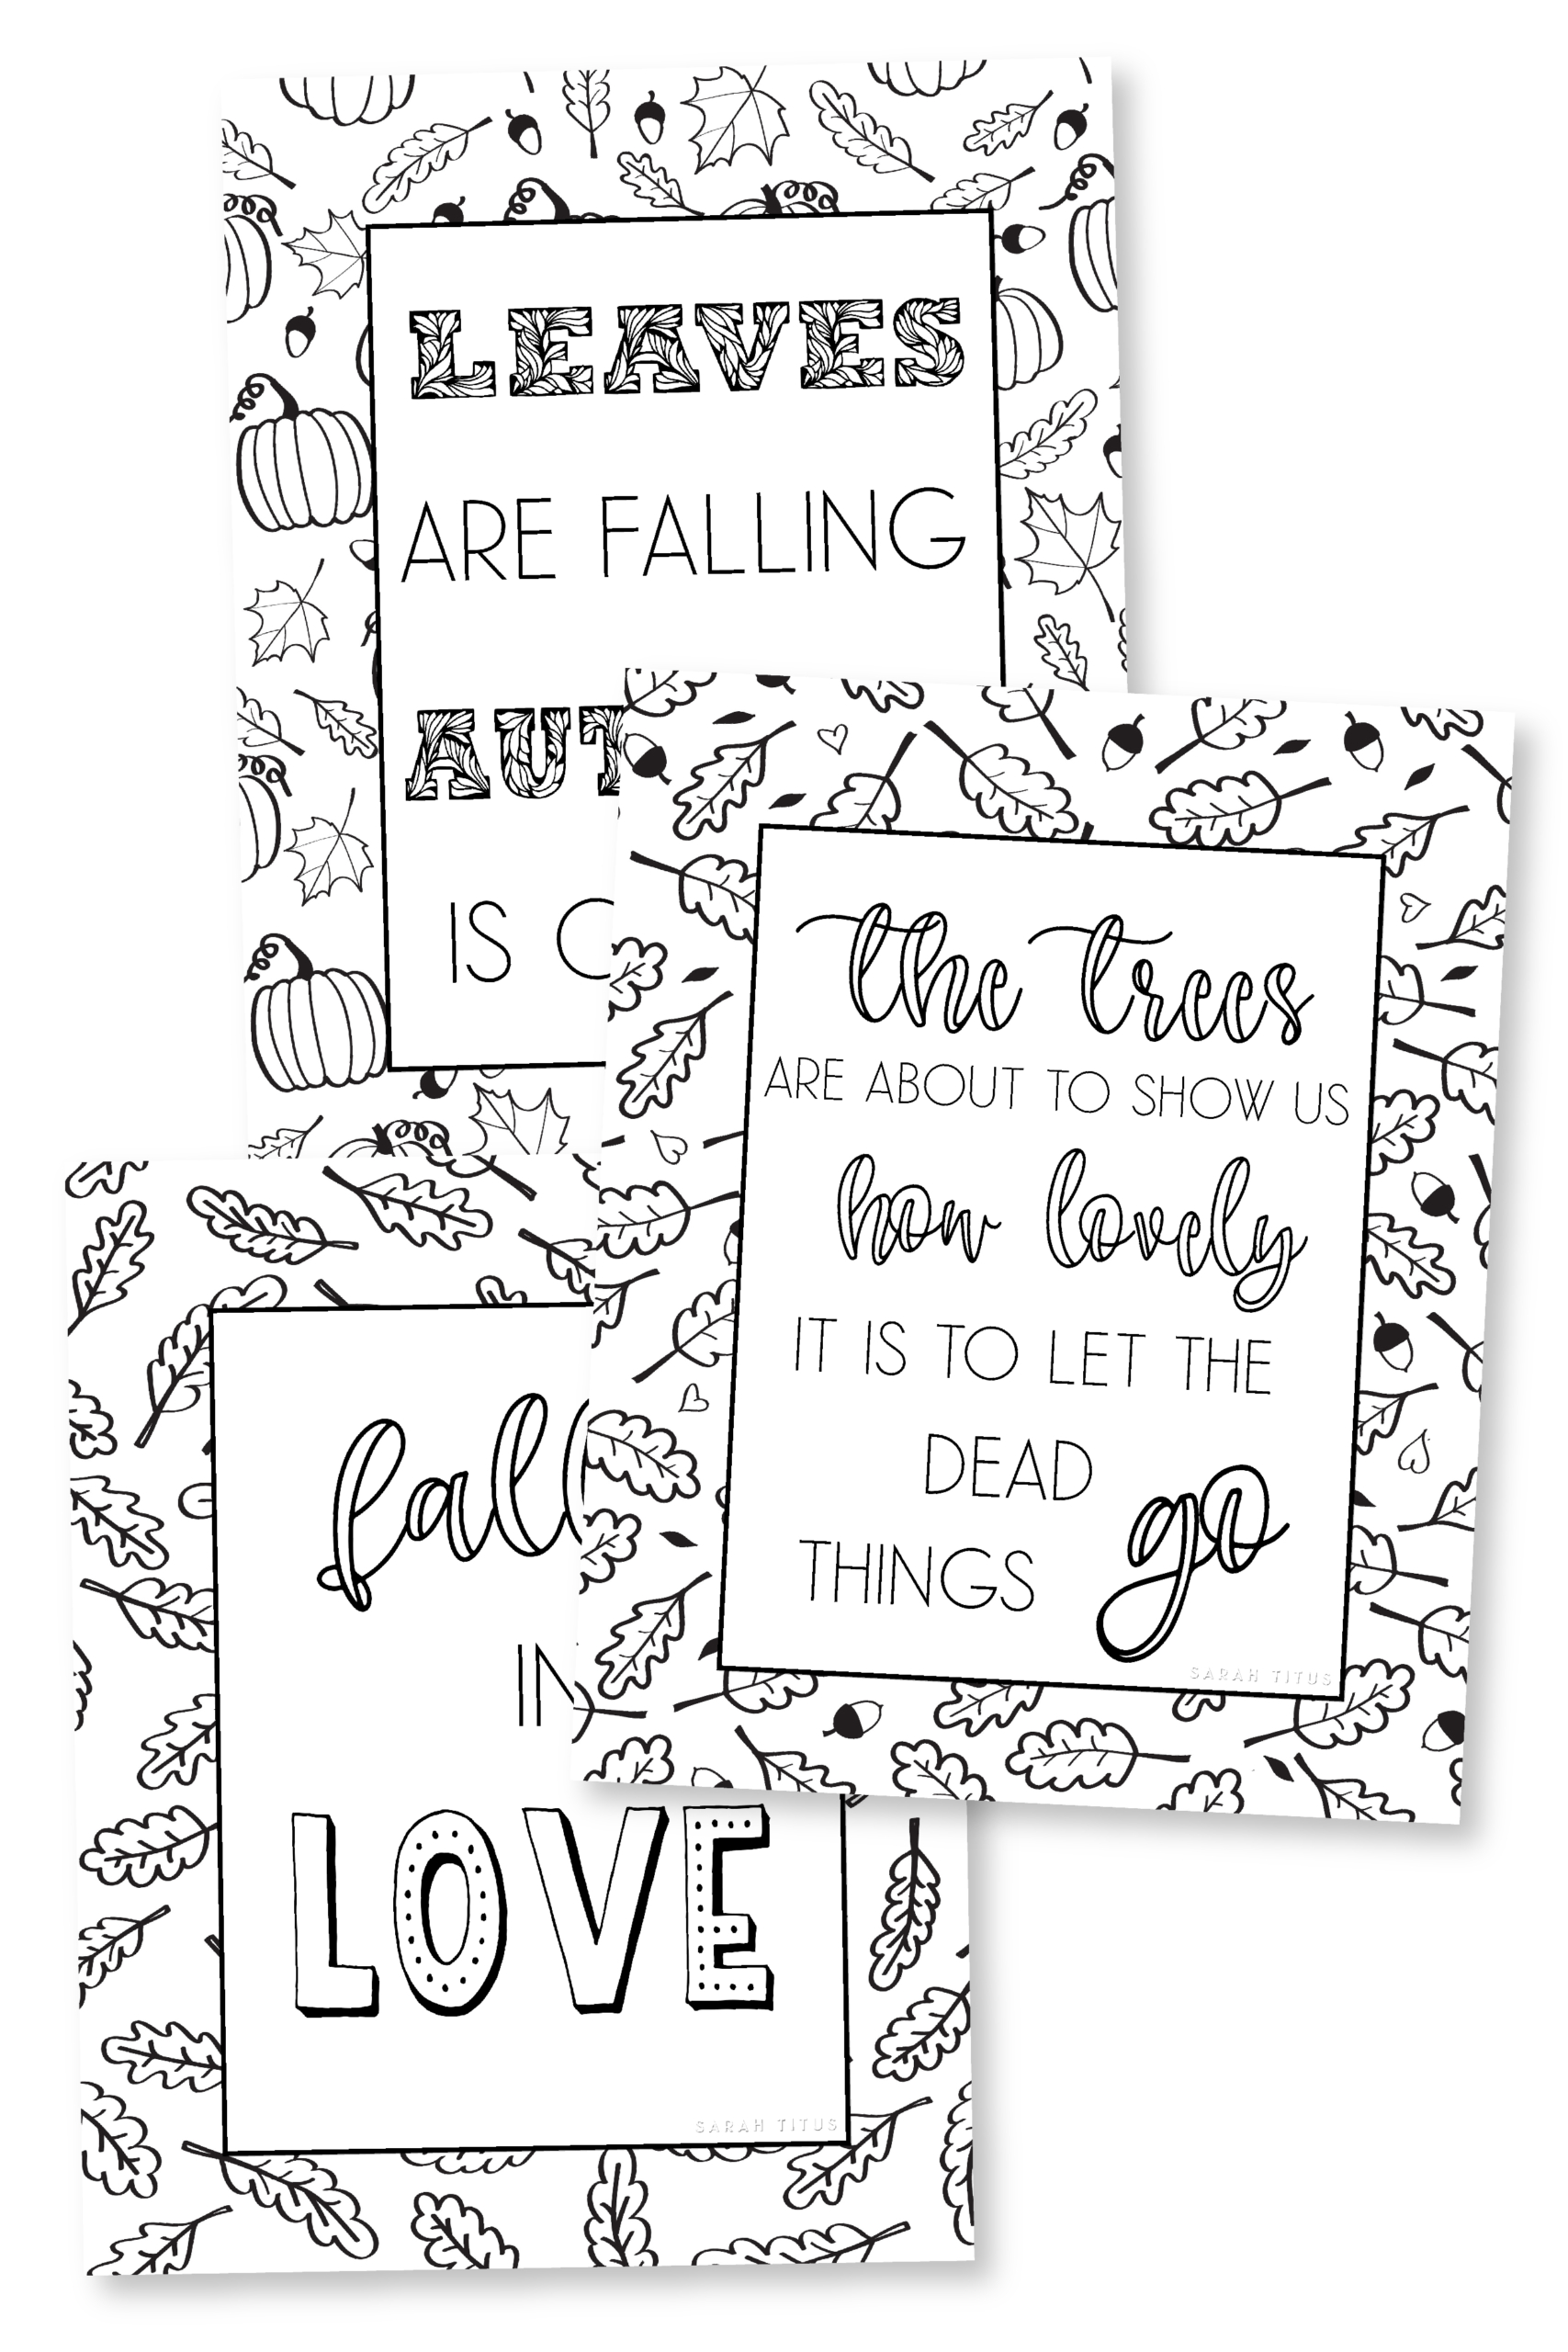 LEAVES
ARE FALLING
AUT
IS
the trees
ARE ABOUT TO SHOW US
how lovely
IT IS TO LET THE
DEAD
THINGS go
SARAH TITUS
fall
IN
LOVE
SARAH TITUS